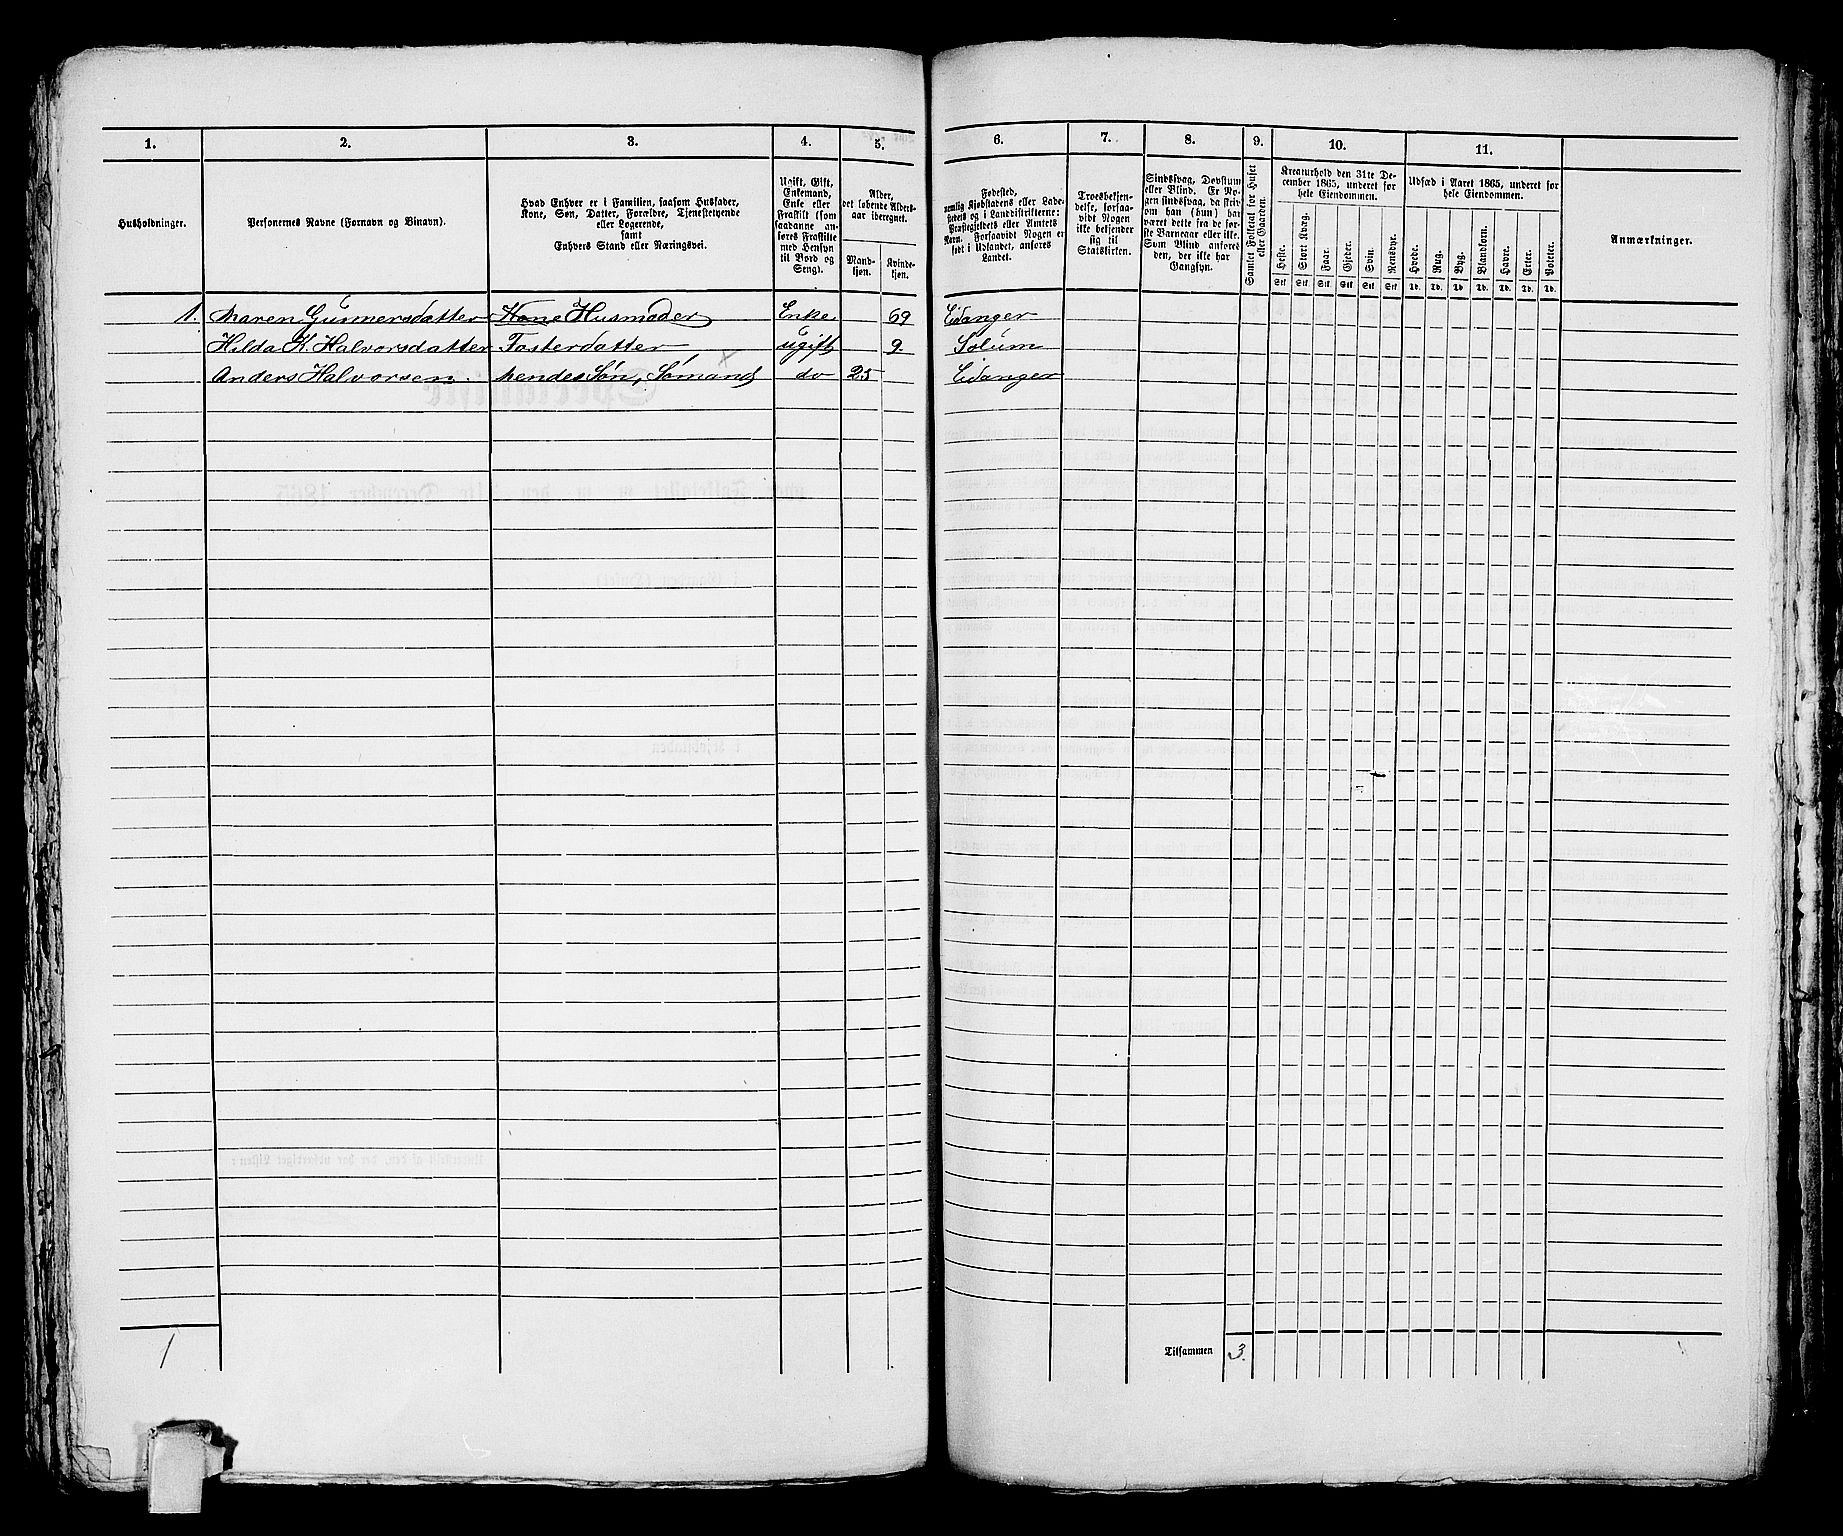 1. 2. 3. 4. 5. 6. 7. 8. 9. 10. 11.
Husholdninger.
Personernes Navne (Fornavn og Binavn).
Hvad Enhver er i Familien, saasom Husfader,
Kone, Søn, Datter, Forældre, Tjenestetyende
eller Logerende,
samt
Enhvers Stand eller Næringsvei.
Ugift, Gift,
Enkemand,
Enke eller
Fraskilt (som
saadanne an-
føres Fraskilte
med Hensyn
til Bord og
Seng).
Alder,
det løbende Alders-
aar iberegnet.
Mand-
kjøn.
Kvinde-
kjøn.
Fødested,
nemlig Kjøbstadens eller Lade-
stedets og i Landdistrikterne:
Præstegjeldets eller Amtets
Navn. Forsaavidt Nogen er
født i Udlandet, anføres
Landet.
Troesbekjen-
delse, forsaa-
vidt Nogen
ikke bekjender
sig til
Statskirken.
Sindssvag, Døvstum
eller Blind. Er No-
gen sindssvag, da skriv
om han (hun) har
været dette fra de før-
ste Barneaar eller ikke.
Som Blind anføres
den, der ikke har
Gangsyn.
Samlet Folketal for Huset
eller Gaarden.
Kreaturhold den 31te De-
cember 1865, underet for
hele Eiendommen.
Heste. Stort Kvæg. Faar. Gjeder. Svin. Rensdyr.
Stk Stk Stk Stk Stk Stk
Udsæd i Aaret 1865, underet for
hele Eiendommen.
Hvede. Rug. Byg. Blandkorn. Havre. Erter. Poteter.
Td. Td. Td. Td. Td. Td. Td.
Anmærkninger.
1. Maren Gunnersdatter Kone Husmoder Enke 69 Eidanger
Hilda K. Halvorsdatter Fosterdatter ugift 9. Solum
Anders Halvorsen. Søn, Sømand do 25 Eidanger
1
Tilsammen 3.